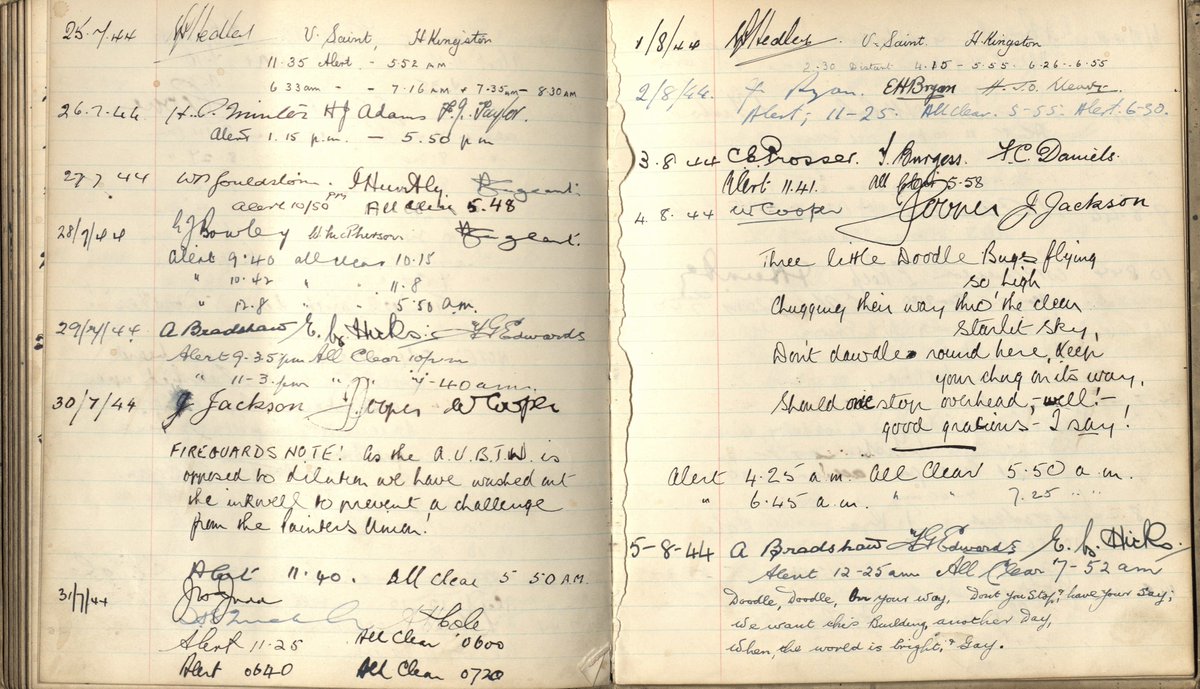 25.7.44 Hedley V. Saint, H Kingston
11.35 Alert - 5.52 AM
6.33am - - 7.16 AM + 7.35am - 8.30 AM
26.7.44 H J Adams F. J. Taylor.
Alert 1.15 p.m. - 5.50 pm
27.7.44
Alert 10/50 pm All Clear 5.48
28/7/44 E J Bowley W McPherson
Alert 9.40 all clear 10.15
" 10.42 " " 11.8
" 12.8 " " 5.50 a.m.
29/7/44 A Bradshaw E. G. Hicks F G Edwards
Alert 9.35pm All Clear 10 pm
" 11-3.pm " " 7-40am.
30/7/44 J Jackson J. Cooper W Cooper
FIREGUARDS NOTE! As the A.U.B.T.W. is
opposed to dilution we have washed out
the inkwell to prevent a challenge
from the Painters Union!
Alert 11.40. All Clear 5 50 A.M.
31/7/44
Cole
Alert 11-25 All Clear 0600
Alert 0640 All Clear 0720
1/8/44 Hedley V. Saint H. Kingston
2.30 Distant 4.15 - 5.55. 6.26 - 6.55
2/8/44. Ryan. EH Bryan
Alert; 11-25. All Clear. 5-55. Alert. 6-30.
3.8.44 C.E. Prosser. J. Burgess. F.C. Daniels.
Alert 11.41. All Clear 5.58
4.8.44 W Cooper J Cooper J Jackson
Three little Doodle Bugs flying
so high
Chugging their way thro' the clear
Starlit sky,
Don't dawdle round here, keep
your chug on its way,
Should one stop overhead,- well!-
good gracious - I say!
Alert 4.25 a.m. All Clear 5.50 a.m.
" 6.45 a.m. " " 7.25 " "
5-8-44 A Bradshaw F G Edwards E. G. Hicks.
Alert 12-25am All Clear 7-52am
Doodle, Doodle, On your way, Don't you stop, & have your say;
We want this Building, another Day,
When, the world is bright, & Gay.